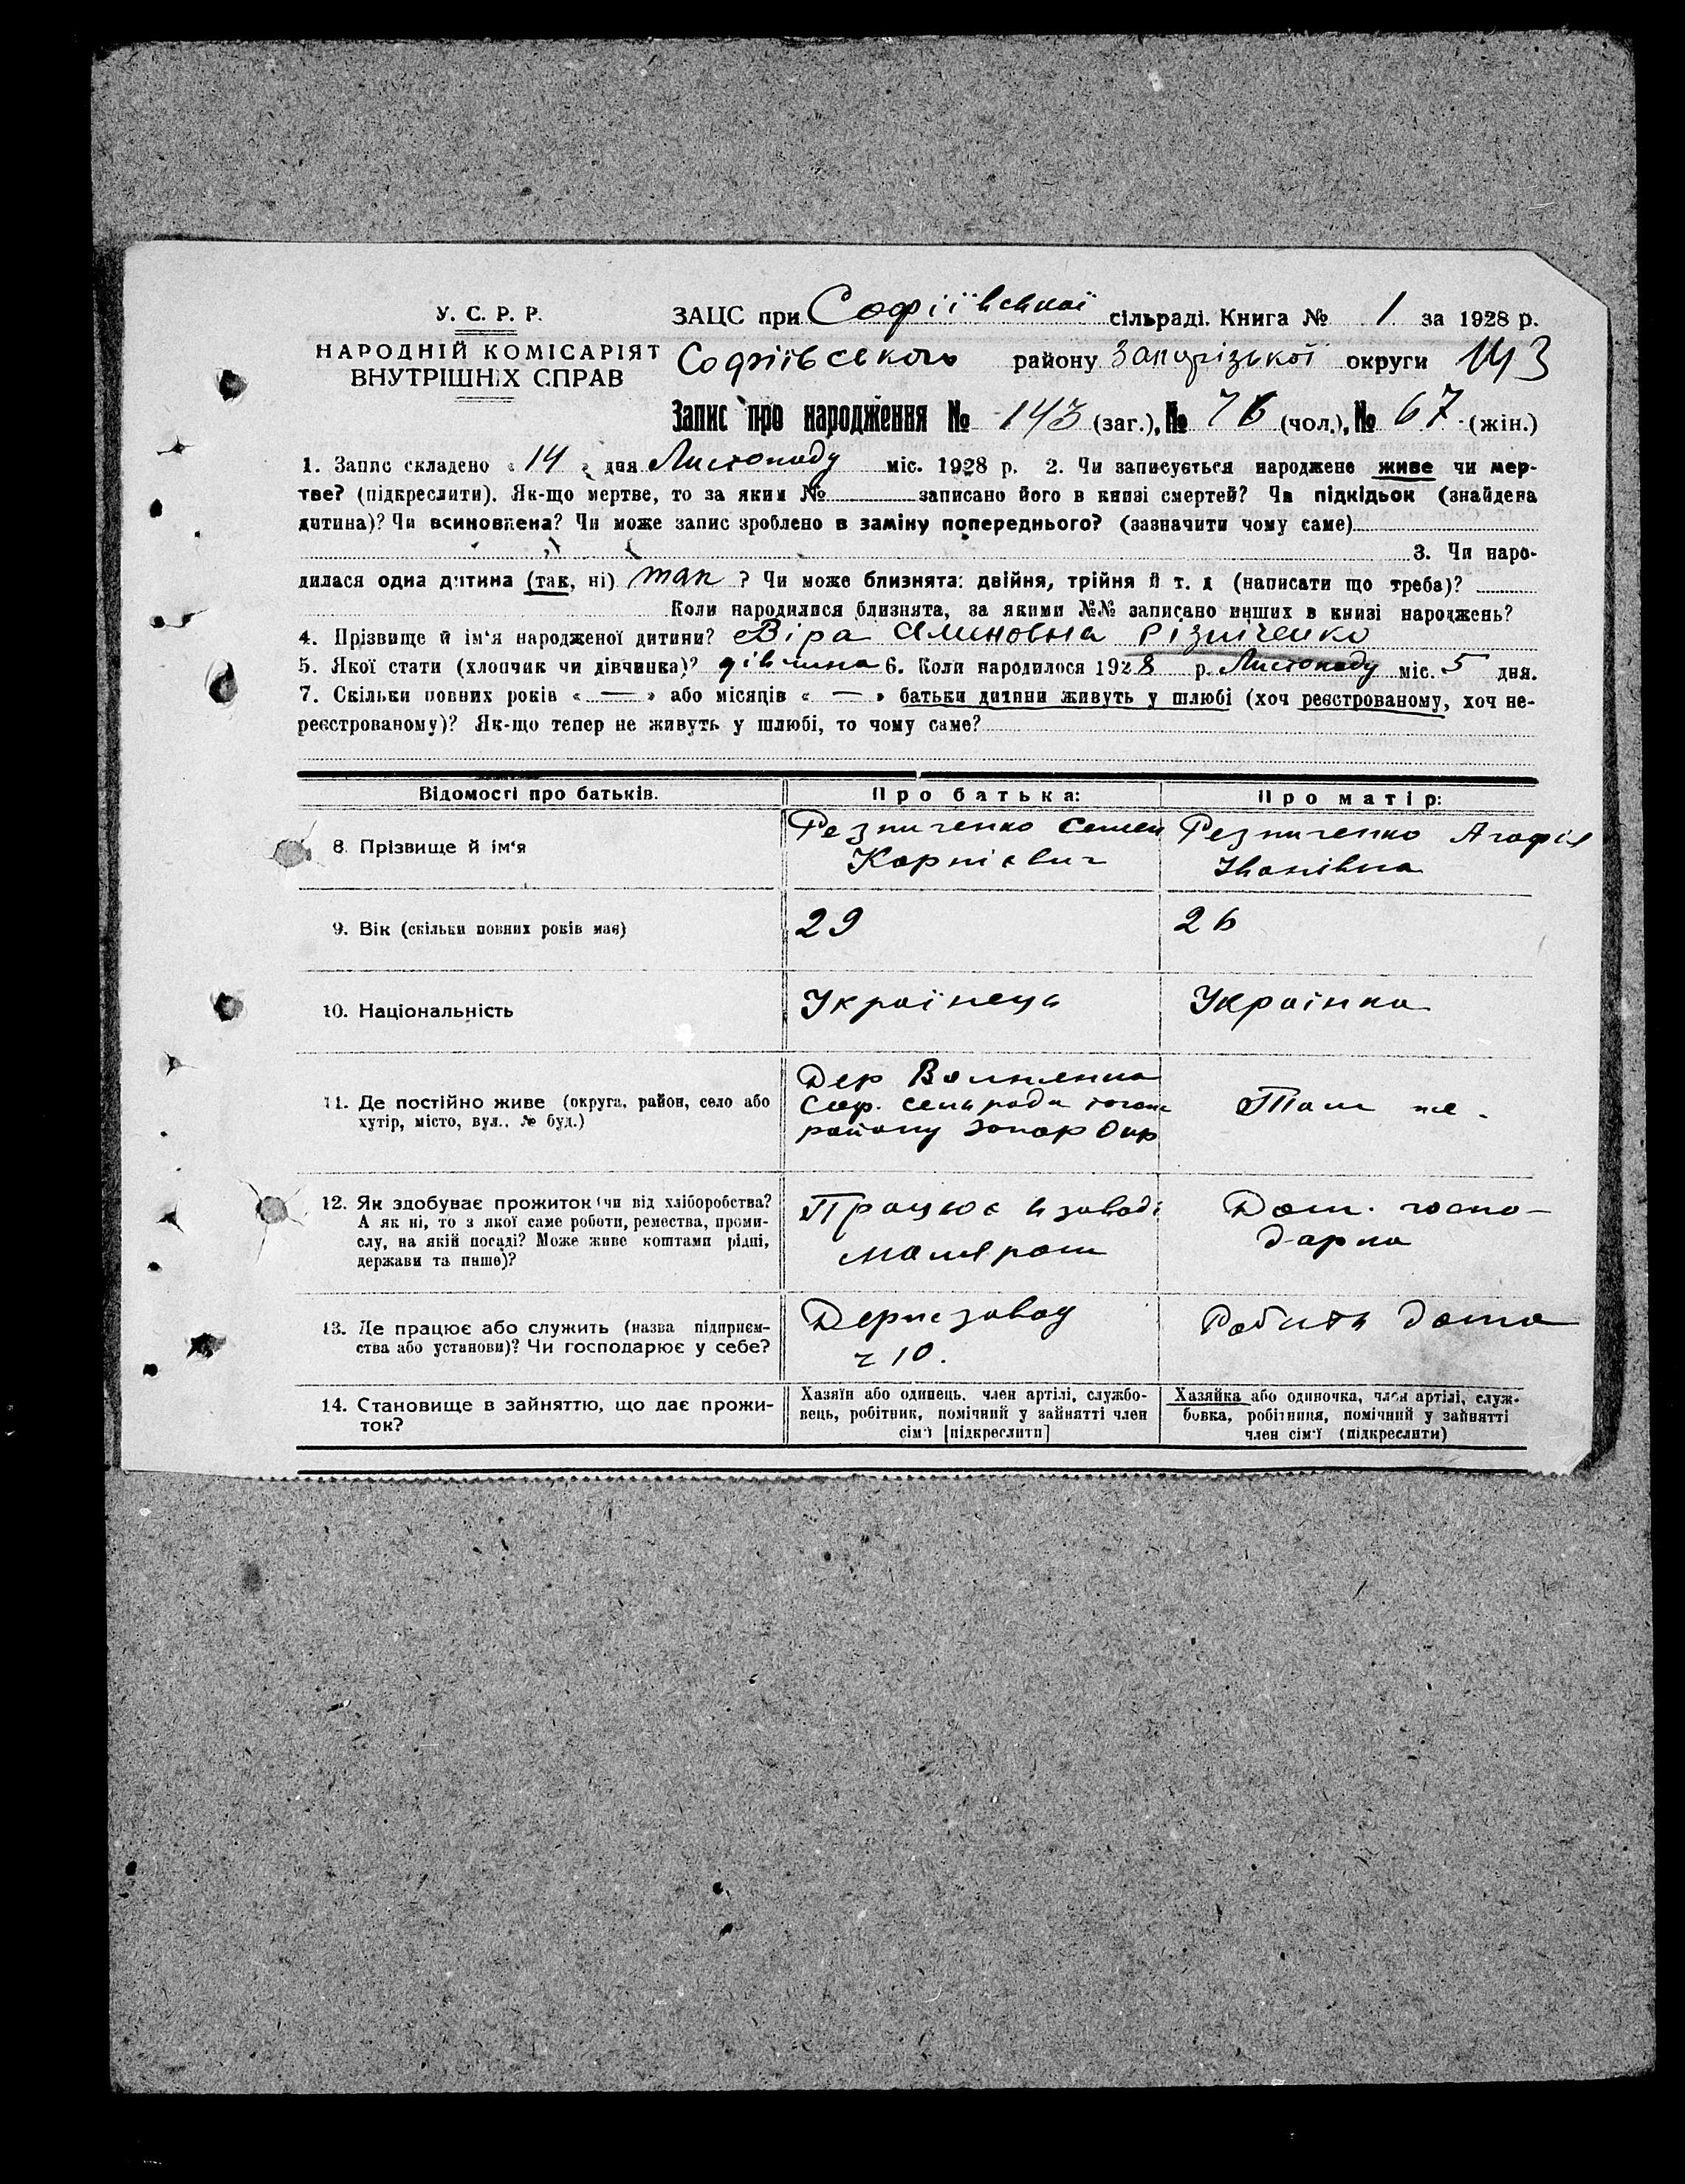 У. С. Р. Р.
НАРОДНІЙ КОМІСАРІЯТ
ВНУТРІШНІХ СПРАВ
ЗАЦС при Софіївській сільраді. Книга № 1 за 1928 р.
Софіївського району Запорізької округи 143
Запис про народження № 143 (заг.), № 76 (чол.), № 67 (жін.)
1. Запис складено « 14 » дня Листопаду міс. 1928 р. 2. Чи записується народжене живе чи мер-
тве? (підкреслити). Як-що мертве, то за яким № записано його в книзі смертей? Чи підкідьок (знайдена
дитина)? Чи всиновлена? Чи може запис зроблено в заміну попереднього? (зазначити чому саме)
3. Чи наро-
дилася одна дитина (так, ні) так ? Чи може близнята: двійня, трійня й т. д (написати що треба)?
Коли народилися близнята, за якими №№ записано инших в книзі народжень?
4. Прізвище й ім‘я народженої дитини? Віра Різніченко
5. Якої стати (хлопчик чи дівчинка)? дівчина 6. Коли народилося 1928 р. Листопаду міс. 5 дня.
7. Скільки повних років « — » або місяців « — » батьки дитини живуть у шлюбі (хоч реєстрованому, хоч не-
реєстрованому)? Як-що тепер не живуть у шлюбі, то чому саме?
Відомості про батьків.
Про батька:
Про матір:
8. Прізвище й ім‘я
Резниченко Семен
Корнієвич
Резниченко Агафія
Іванівна
9. Вік (скільки повних років має)
29
26
10. Національність
Українець
Українка
11. Де постійно живе (округа, район, село або
хутір, місто, вул., № буд.)
Дер
Соф. сельради
району Запор Окр
Там же.
12. Як здобуває прожиток (чи від хліборобства?
А як ні, то з якої саме роботи, ремества, проми-
слу, на якій посаді? Може живе коштами рідні,
держави та инше)?
Працює в заводі
маляром
Дом. госпо-
дарка
13. Де працює або служить (назва підприєм-
ства або установи)? Чи господарює у себе?
Держзавод
ч 10.
Робить дома
14. Становище в зайняттю, що дає прожи-
ток?
Хазяїн або одинець, член артілі, службо-
вець, робітник, помічний у зайнятті член
сім‘ї [підкреслити]
Хазяйка або одиночка, член артілі, служ-
бовка, робітниця, помічний у зайнятті
член сім‘ї (підкреслити)